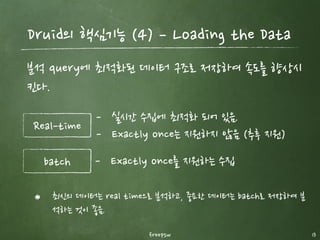 Druid의 핵심기능 (4) - Loading the Data
분석 query에 최적화된 데이터 구조로 저장하여 속도를 향상시
킨다.
Real-time
- 실시간 수집에 최적화 되어 있음
- Exactly once는 지원하지 않음 (추후 지원)
batch
- Exactly once를 지원하는 수집
최신의 데이터는 real time으로 분석하고, 중요한 데이터는 batch로 저장하여 분
석하는 것이 좋음
freepsw
13